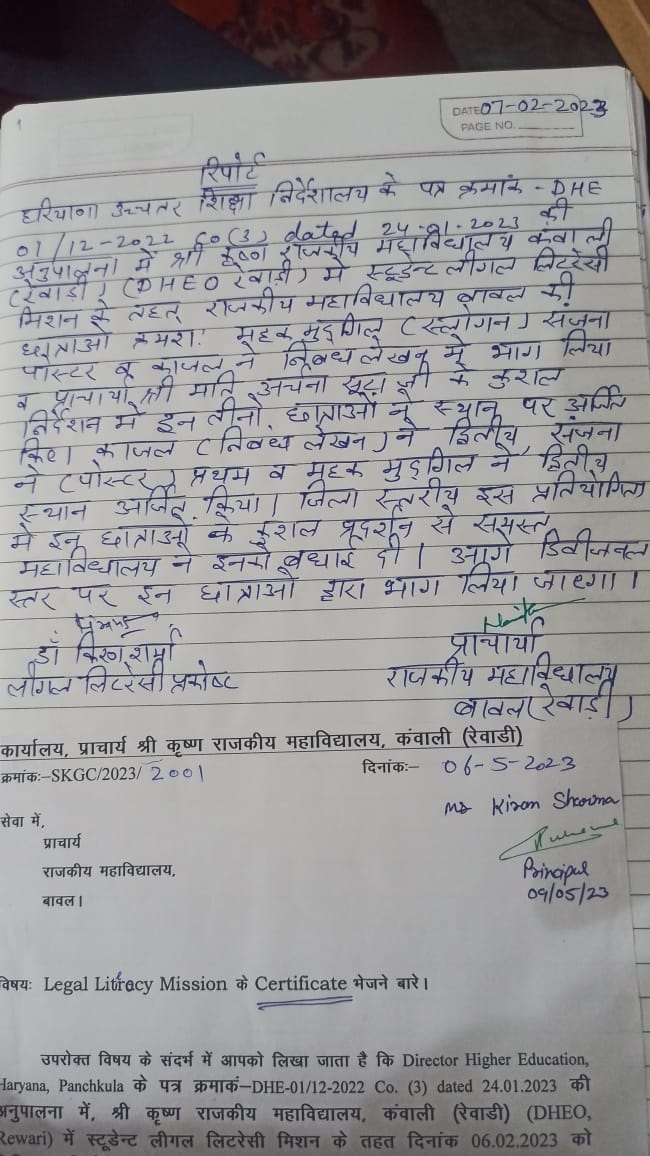 1
DATE 07-02-2023
PAGE NO.
रिपोर्ट
हरियाणा उच्चतर शिक्षा निर्देशालय के पत्र क्रमांक - DHE
01/12-2022 Co (3) dated 24-01-2023 की
अनुपालना में श्री कृष्ण राजकीय महाविद्यालय कंवाली
(रेवाड़ी) (DHEO रेवाड़ी) में स्टूडेन्ट लीगल लिटरेसी
मिशन के तहत राजकीय महाविद्यालय बावल की
छात्राओं क्रमशः महक मुद्गिल (स्लोगन) संजना
पोस्टर व काजल ने निबंध लेखन में भाग लिया
व प्राचार्या श्री मति अर्चना जी के कुशल
निर्देशन में इन तीनों छात्राओं ने स्थान पर अर्जित
किए। काजल (निबंध लेखन) ने द्वितीय, संजना
ने (पोस्टर) प्रथम व महक मुद्गिल ने द्वितीय
स्थान अर्जित किया। जिला स्तरीय इस प्रतियोगिता
में इन छात्राओं के कुशल प्रदर्शन से समस्त
महाविद्यालय ने इनको बधाई दी। आगे डिवीजनल
स्तर पर इन छात्राओं द्वारा भाग लिया जाएगा।
डॉ किरण शर्मा
लीगल लिटरेसी प्रकोष्ट
प्राचार्या
राजकीय महाविद्यालय
बावल (रेवाड़ी)
कार्यालय, प्राचार्य श्री कृष्ण राजकीय महाविद्यालय, कंवाली (रेवाडी)
क्रमांक:–SKGC/2023/ 2001 दिनांक:– 06-5-2023
Ms Kiran Sharma
सेवा में,
प्राचार्य
राजकीय महाविद्यालय,
बावल।
Principal
09/05/23
विषयः Legal Literacy Mission के Certificate भेजने बारे।
उपरोक्त विषय के संदर्भ में आपको लिखा जाता है कि Director Higher Education,
Haryana, Panchkula के पत्र क्रमांक–DHE-01/12-2022 Co. (3) dated 24.01.2023 की
अनुपालना में, श्री कृष्ण राजकीय महाविद्यालय, कंवाली (रेवाडी) (DHEO,
Rewari) में स्टूडेन्ट लीगल लिटरेसी मिशन के तहत दिनांक 06.02.2023 को